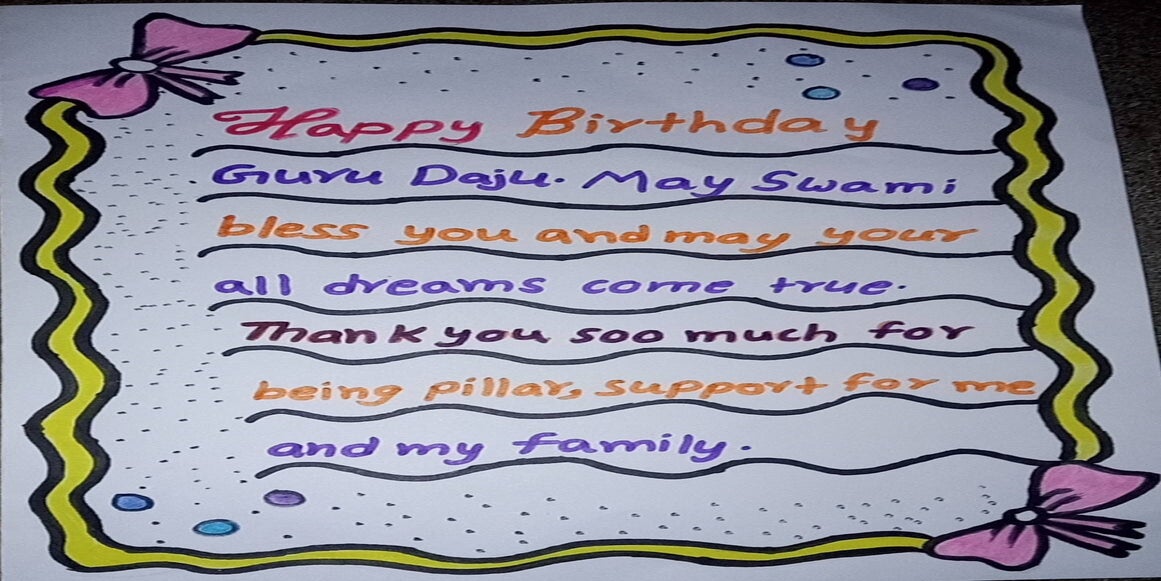 Happy Birthday
Guru Daju. May Swami
bless you and may your
all dreams come true.
Thank you soo much for
being pillar, support for me
and my family.